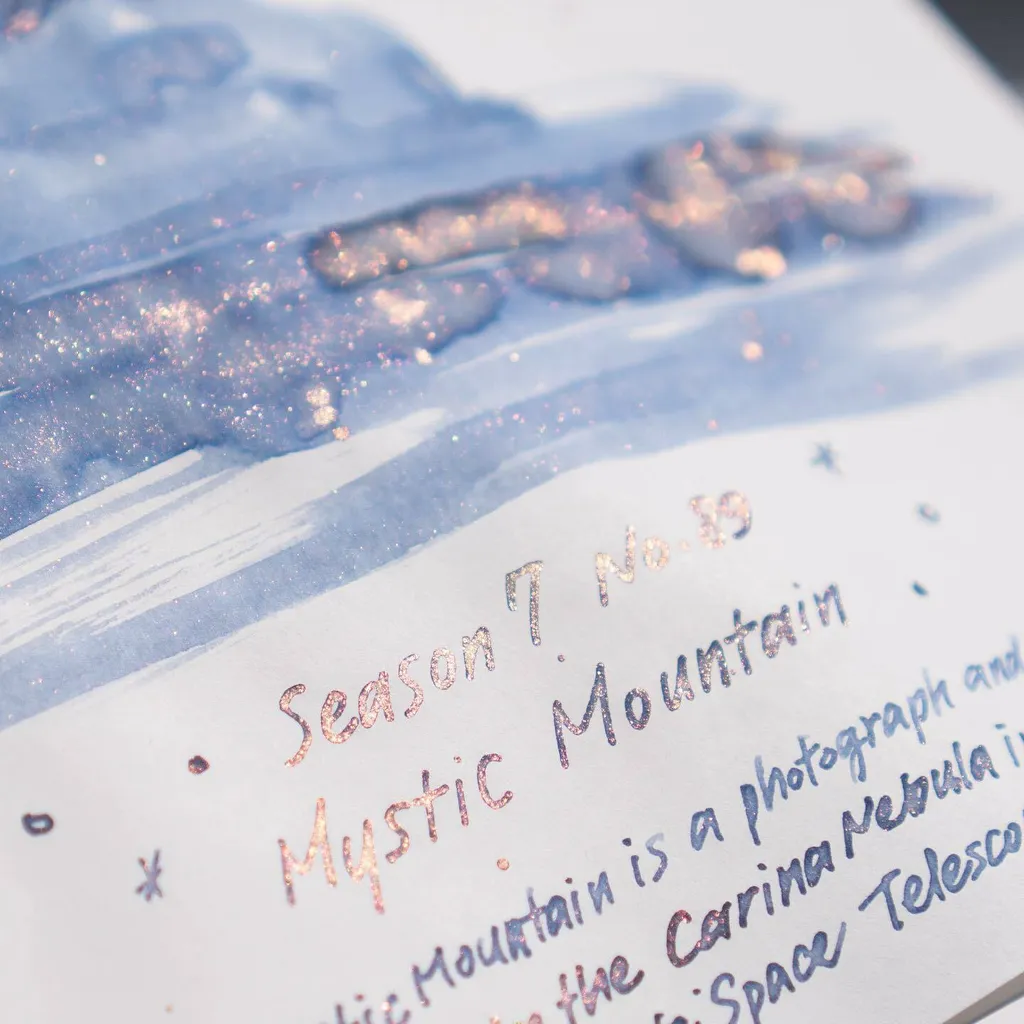 Season 7 No. 89
Mystic Mountain
Mountain is a photograph and
the Carina Nebula
Space